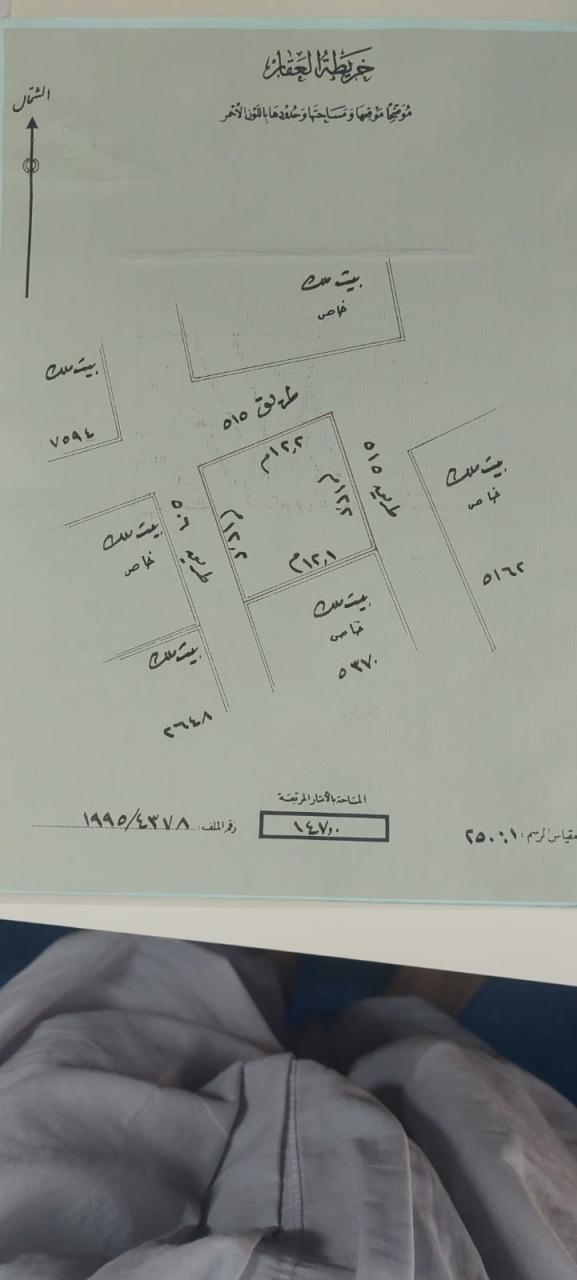 خريطة العقار
الشمال
موضحاً موقعها ومساحتها وحدودها باللون الأحمر
بيت ملك
خاص
بيت ملك
٧٥٩٤
طريق ٥١٥
١٢,٢م
١٢,٢م
١٢,٢م
١٢,١م
طريق ٥١٥
بيت ملك
خاص
٥١٦٢
طريق ٥٠٦
بيت ملك
خاص
بيت ملك
خاص
٥٣٧٠
بيت ملك
٢٦٤٨
المساحة بالأمتار المربعة
١٤٧,٠٠
رقم الملف: ١٩٩٥/٤٣٧٨
مقياس الرسم: ٢٥٠:١